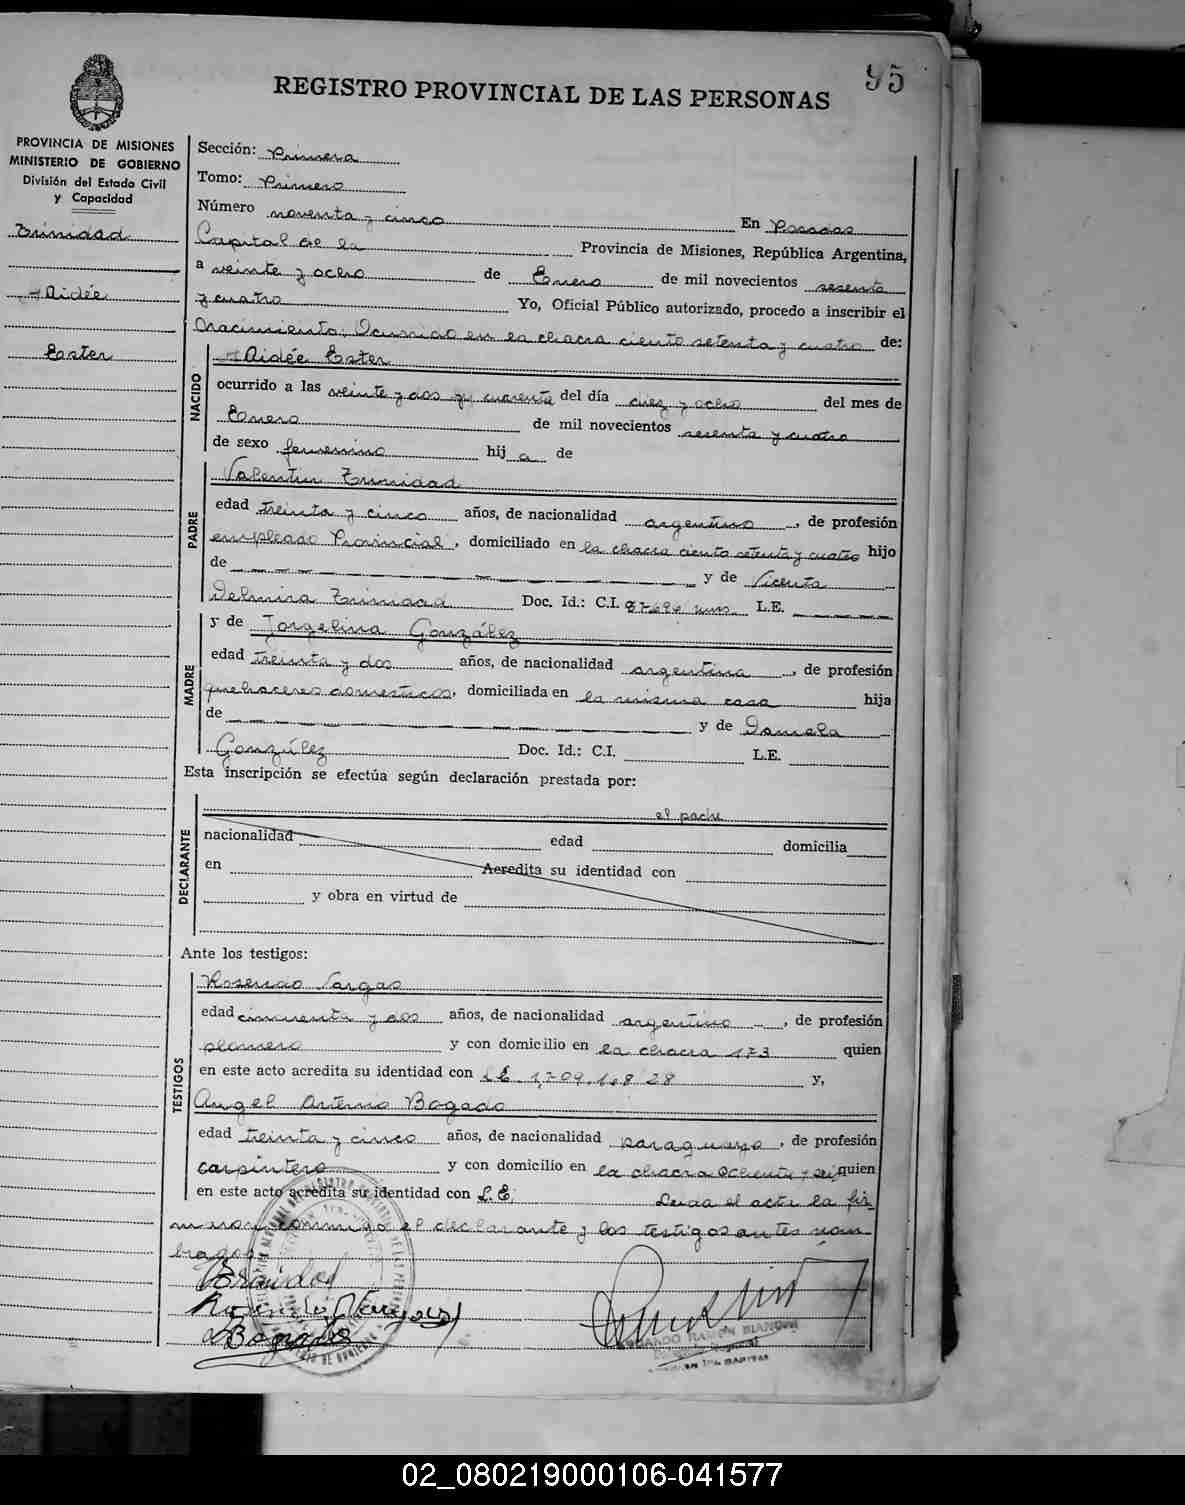 95
REGISTRO PROVINCIAL DE LAS PERSONAS
PROVINCIA DE MISIONES
MINISTERIO DE GOBIERNO
División del Estado Civil
y Capacidad
Trinidad
Aidée
Ester
Sección: Primera
Tomo: Primero
Número noventa y cinco En Posadas
Capital de la Provincia de Misiones, República Argentina,
a veinte y ocho de Enero de mil novecientos sesenta
y cuatro Yo, Oficial Público autorizado, procedo a inscribir el
Nacimiento: Ocurrido en la chacra ciento setenta y cuatro de:
NACIDO
Aidée Ester
ocurrido a las veinte y dos y cuarenta del día diez y ocho del mes de
Enero de mil novecientos sesenta y cuatro
de sexo femenino hij a de
PADRE
Valentin Trinidad
edad treinta y cinco años, de nacionalidad argentino, de profesión
empleado Provincial, domiciliado en la chacra ciento setenta y cuatro hijo
de y de Vicenta
Delmira Trinidad Doc. Id.: C.I. 87696 L.E.
MADRE
y de Jorgelina González
edad treinta y dos años, de nacionalidad argentina, de profesión
quehaceres domesticos, domiciliada en la misma casa hija
de y de Daniela
González Doc. Id.: C.I. L.E.
Esta inscripción se efectúa según declaración prestada por:
DECLARANTE
el padre
nacionalidad edad domicilia
en Acredita su identidad con
y obra en virtud de
Ante los testigos:
TESTIGOS
Rosendo Vargas
edad cincuenta y dos años, de nacionalidad argentino, de profesión
plomero y con domicilio en la chacra 173 quien
en este acto acredita su identidad con L.E. y,
Angel Artemio Bogado
edad treinta y cinco años, de nacionalidad paraguayo, de profesión
carpintero y con domicilio en la chacra ochenta y seis quien
en este acto acredita su identidad con L.E; Leida el acta la fir-
maron conmigo el declarante y los testigos antes nom-
brados.
Bogado
RAMON BIANCHI
02_080219000106-041577